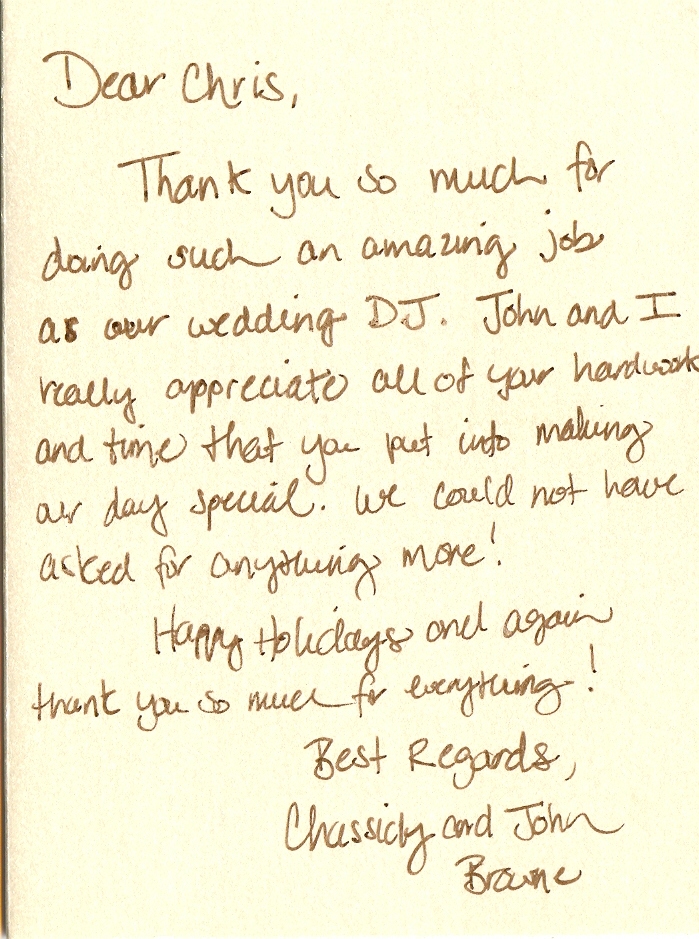 Dear Chris,
Thank you so much for
doing such an amazing job
as our wedding DJ. John and I
really appreciate all of your hardwork
and time that you put into making
our day special. We could not have
asked for anything more!
Happy Holidays and again
thank you so much for everything!
Best Regards,
Chassidy and John
Browne